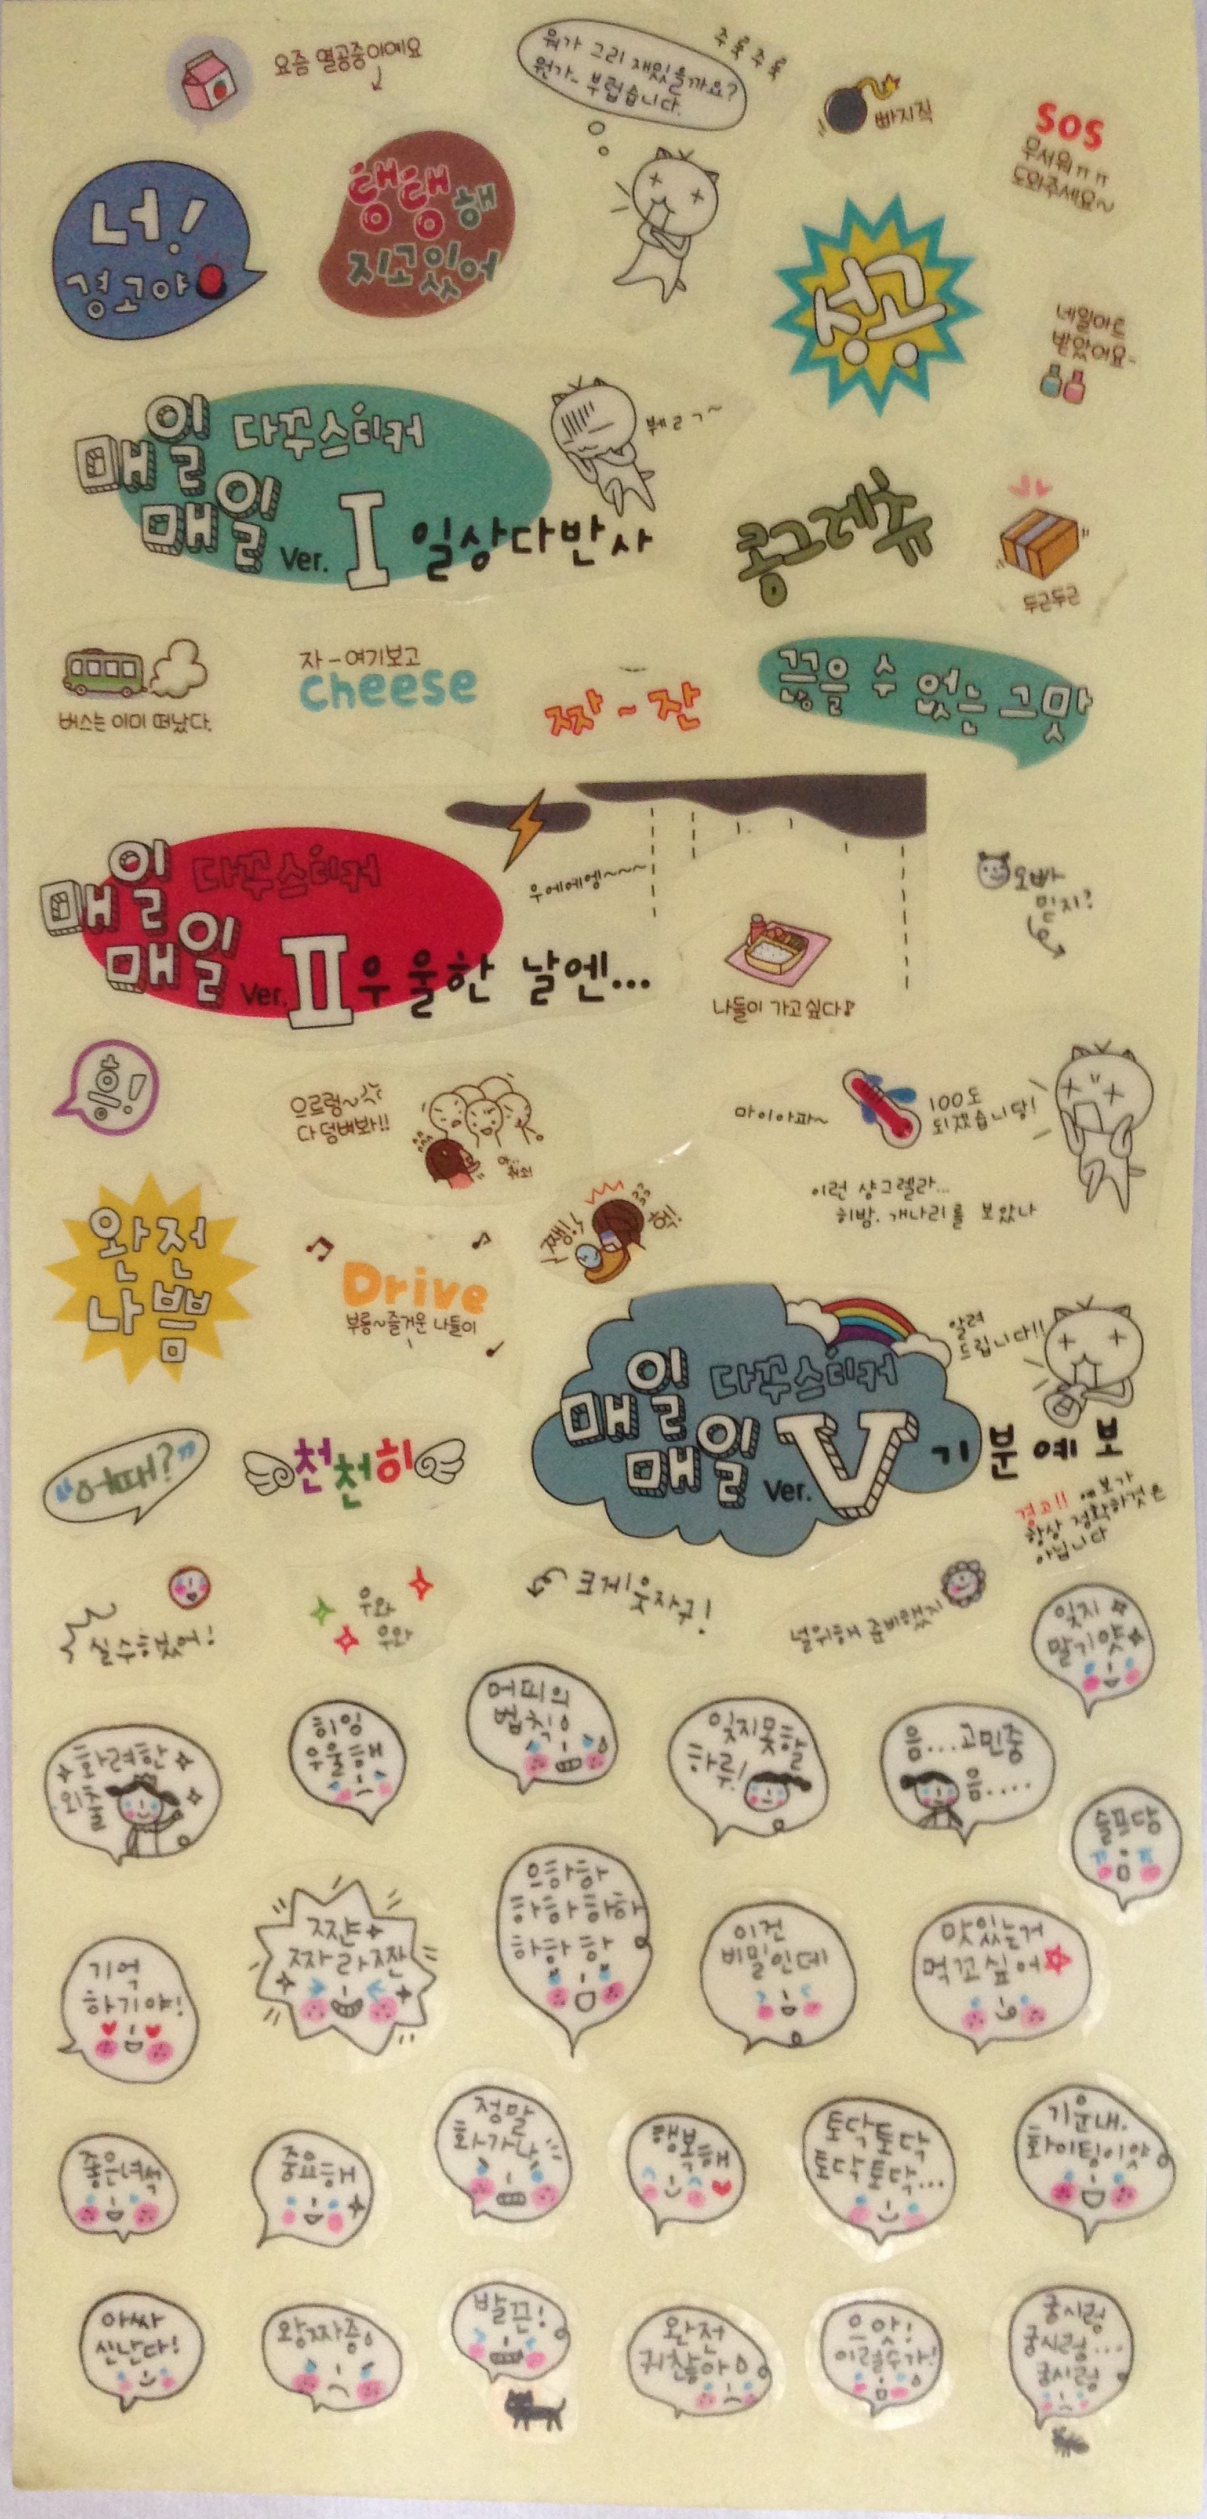 요즘 열공중이예요
뭐가 그리 재밌을까요?
뭔가- 부럽습니다.
주룩주룩
빠지직
SOS
무서워ㅠㅠ
도와주세요~
너!
경고야
탱탱해
지고있어
성공
네일아트
받았어요~
매일 다꾸스티커
매일 Ver. I 일상다반사
뷁ㄹㄱ~
콩그레츄
두근두근
버스는 이미 떠났다.
자-여기보고
cheese
짜~잔
끊을 수 없는 그맛
우에에엥~~~
매일 다꾸스티커
매일 Ver. II 우울한 날엔...
오빠
믿지?
나들이 가고싶다♪
응!
으르렁~
다덤벼봐!!
마이아파~
100도
되겠습니당!
이런 샹그렐라...
히밤. 개나리를 보았나
쨍!
헉!
완전
나쁨
Drive
부릉~즐거운 나들이
알려
드립니다!!
매일 다꾸스티커
매일 Ver. V 기분예보
경고!! 예보가
항상 정확한것은
아닙니다
"어때?"
천천히
실수했어!
우와
우와
크게웃자구!
널위해 준비했지
잊지
말기얏
화려한
외출
히잉
우울해
머피의
법칙
잊지못할
하루!
음...고민중
음....
슬프당
기억
하기야!
짠
짜라짠
으하하
하하하하
하하하
이건
비밀인데
맛있는거
먹고싶어
좋은녀석
중요해
정말
화가나
행복해
토닥토닥
토닥토닥...
기운내.
화이팅이얏
아싸
신난다!
왕짜증
발끈!
완전
귀찮아
으앗!
이럴수가!
궁시렁
궁시렁...
궁시렁